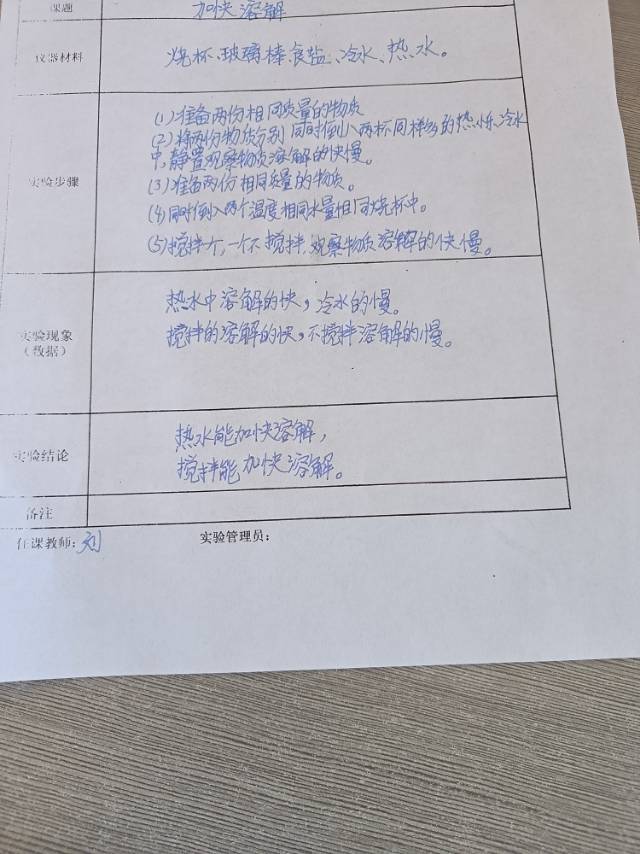 课题 加快溶解
仪器材料 烧杯、玻璃棒、食盐、冷水、热水。
(1)准备两份相同质量的物质
(2)将两份物质分别同时倒入两杯同样多的热水、冷水
实验步骤 中,静置观察物质溶解的快慢。
(3)准备两份相同质量的物质。
(4)同时倒入两个温度相同水量相同烧杯中。
(5)搅拌一个,一个不搅拌,观察物质溶解的快慢。
热水中溶解的快,冷水的慢。
实验现象 搅拌的溶解的快,不搅拌溶解的慢。
(数据)
热水能加快溶解,
实验结论 搅拌能加快溶解。
备注
任课教师:刘 实验管理员: